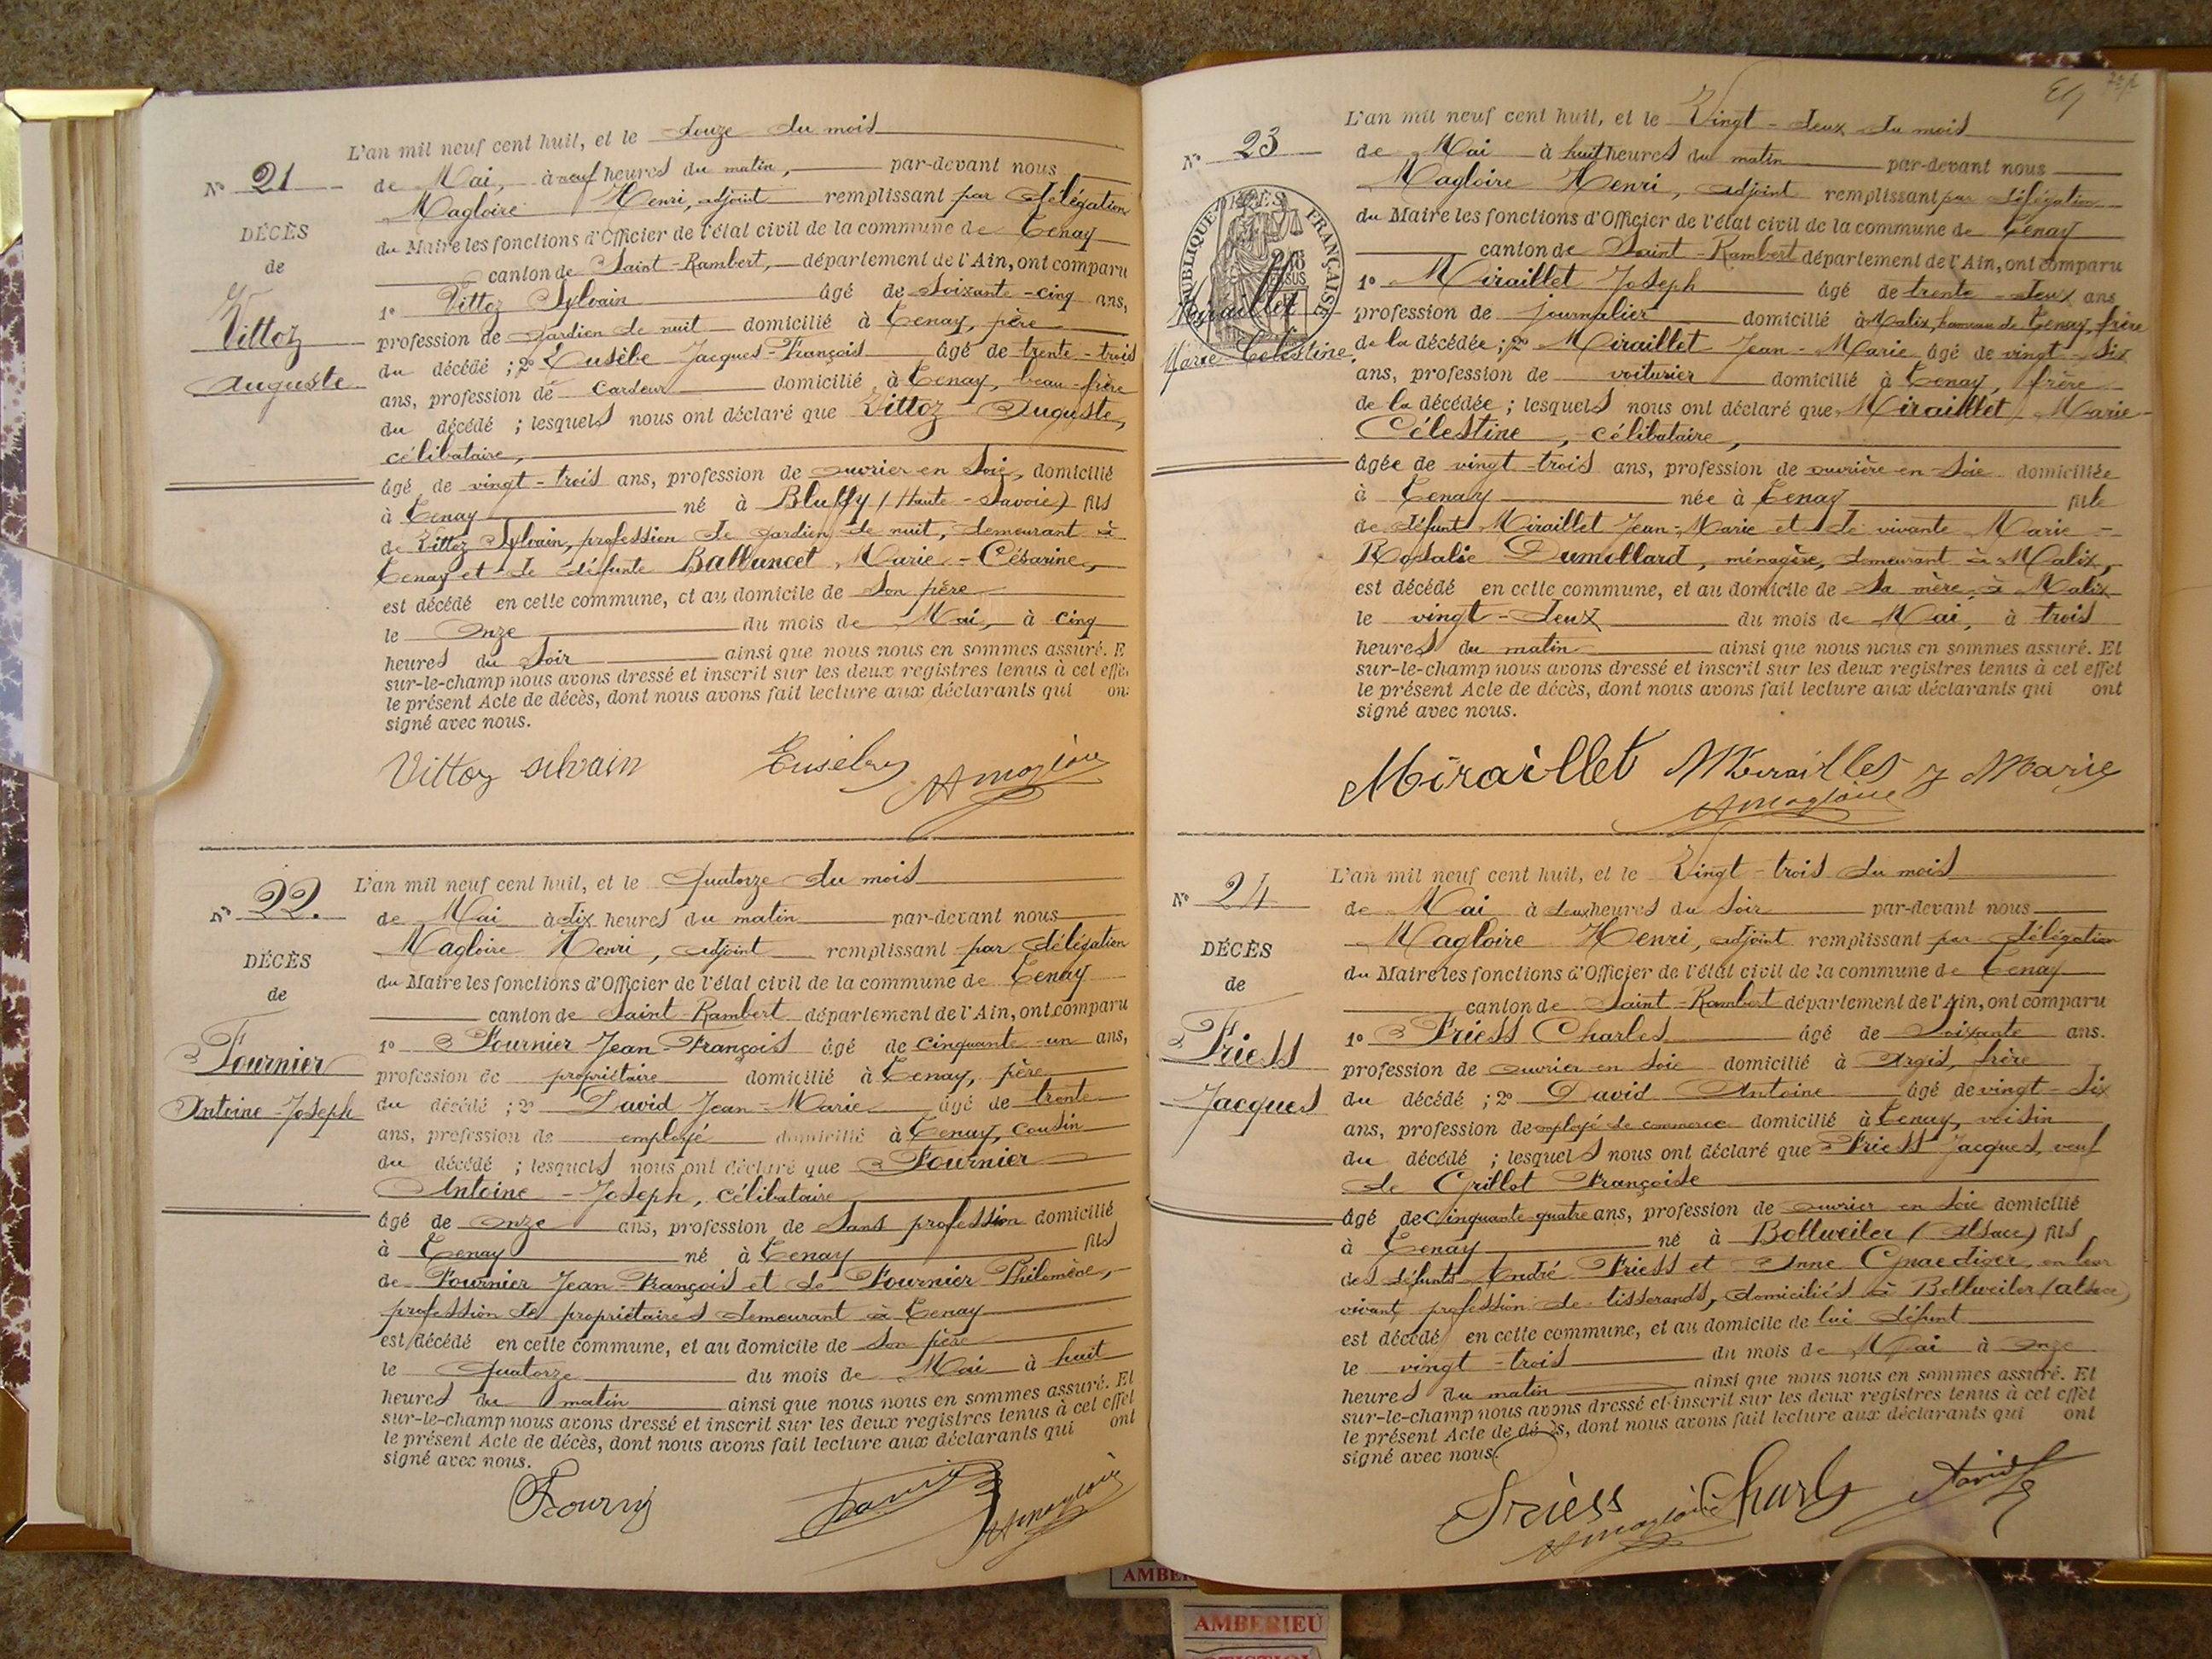 L'an mil neuf cent huit, et le douze du mois
No 21
de Mai, à neuf heures du matin, par-devant nous
Magloire Henri, adjoint remplissant par délégation
DÉCÈS
du Maire les fonctions d'Officier de l'état civil de la commune de Tenay
de
canton de Saint-Rambert, département de l'Ain, ont comparu
Vittoz
1o Vittoz Sylvain âgé de soixante-cinq ans,
profession de gardien de nuit domicilié à Tenay, père
Auguste
du décédé ; 2o Eusèbe Jacques-François âgé de trente-trois
ans, profession de cardeur domicilié à Tenay, beau-frère
du décédé ; lesquels nous ont déclaré que Vittoz Auguste,
célibataire,
âgé de vingt-trois ans, profession de ouvrier en soie, domicilié
à Tenay né à Bluffy (Haute-Savoie) fils
de Vittoz Sylvain, profession de gardien de nuit, demeurant à
Tenay et de défunte Ballancet Marie-Césarine,
est décédé en cette commune, et au domicile de son père
le onze du mois de Mai, à cinq
heures du soir ainsi que nous nous en sommes assuré. E
sur-le-champ nous avons dressé et inscrit sur les deux registres tenus à cet effe
le présent Acte de décès, dont nous avons fait lecture aux déclarants qui on
signé avec nous.
Vittoz silvain Eusèbe HMagloire
L'an mil neuf cent huit, et le quatorze du mois
No 22.
de Mai à dix heures du matin par-devant nous
Magloire Henri, adjoint remplissant par délégation
DÉCÈS
du Maire les fonctions d'Officier de l'état civil de la commune de Tenay
de
canton de Saint-Rambert département de l'Ain, ont comparu
Fournier
1o Fournier Jean-François âgé de cinquante-un ans,
profession de propriétaire domicilié à Tenay, père
Antoine-Joseph
du décédé ; 2o David Jean-Marie âgé de trente
ans, profession de employé domicilié à Tenay, cousin
du décédé ; lesquels nous ont déclaré que Fournier
Antoine-Joseph, célibataire
âgé de onze ans, profession de sans profession domicilié
à Tenay né à Tenay fils
de Fournier Jean-François et de Fournier Philomène,
profession de propriétaires demeurant à Tenay
est décédé en cette commune, et au domicile de son père
le quatorze du mois de Mai à huit
heures du matin ainsi que nous nous en sommes assuré. Et
sur-le-champ nous avons dressé et inscrit sur les deux registres tenus à cet effet
le présent Acte de décès, dont nous avons fait lecture aux déclarants qui ont
signé avec nous.
David HMagloire
L'an mil neuf cent huit, et le Vingt-deux du mois
No 23
de Mai à huit heures du matin par-devant nous
Magloire Henri, adjoint remplissant par délégation
RÉPUBLIQUE FRANÇAISE
du Maire les fonctions d'Officier de l'état civil de la commune de Tenay
canton de Saint-Rambert département de l'Ain, ont comparu
1o Miraillet Joseph âgé de trente-deux ans
Miraillet
profession de journalier domicilié à Malix, hameau de Tenay, frère
Marie Célestine.
de la décédée ; 2o Miraillet Jean-Marie âgé de vingt-six
ans, profession de voiturier domicilié à Tenay, frère
de la décédée ; lesquels nous ont déclaré que Miraillet Marie-
Célestine, célibataire,
âgée de vingt-trois ans, profession de ouvrière en soie domiciliée
à Tenay née à Tenay fille
de défunt Miraillet Jean-Marie et de vivante Marie-
Rosalie Dumollard, ménagère, demeurant à Malix,
est décédé en cette commune, et au domicile de sa mère, à Malix
le vingt-deux du mois de Mai, à trois
heures du matin ainsi que nous nous en sommes assuré. Et
sur-le-champ nous avons dressé et inscrit sur les deux registres tenus à cet effet
le présent Acte de décès, dont nous avons fait lecture aux déclarants qui ont
signé avec nous.
Miraillet Miraillet J Marie
HMagloire
L'an mil neuf cent huit, et le Vingt-trois du mois
No 24
de Mai à deux heures du soir par-devant nous
Magloire Henri, adjoint remplissant par délégation
DÉCÈS
du Maire les fonctions d'Officier de l'état civil de la commune de Tenay
de
canton de Saint-Rambert département de l'Ain, ont comparu
Friess
1o Friess Charles âgé de soixante ans.
profession de ouvrier en soie domicilié à Argis, frère
Jacques
du décédé ; 2o David Antoine âgé de vingt-six
ans, profession de employé de commerce domicilié à Tenay, voisin
du décédé ; lesquels nous ont déclaré que Friess Jacques, veuf
de Grillot Françoise
âgé de Cinquante-quatre ans, profession de ouvrier en soie domicilié
à Tenay né à Bollweiler (Alsace) fils
des défunts André Friess et Anne Gnaediger, en leur
vivant profession de tisserands, domiciliés à Bollweiler (alsace)
est décédé en cette commune, et au domicile de lui défunt
le vingt-trois du mois de Mai à onze
heures du matin ainsi que nous nous en sommes assuré. Et
sur-le-champ nous avons dressé et inscrit sur les deux registres tenus à cet effet
le présent Acte de décès, dont nous avons fait lecture aux déclarants qui ont
signé avec nous.
Frièss Charls David
HMagloire
AMBERIEU